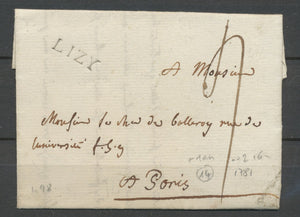 LIZY
A Monsieur
Monsieur le che de balleroy rue de
l'université f.S.g
A Paris
14
1781